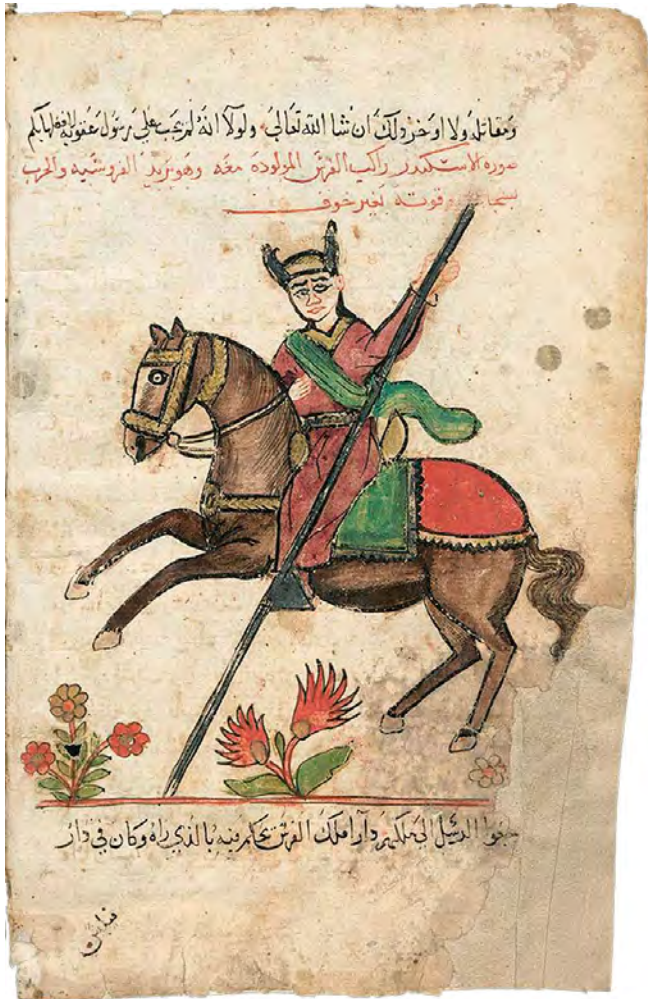 ومقاتله ولا اوخر ذلك ان شا الله تعالي ولولا انه لم يجب علي رسول عقوبه
صوره الاسكندر راكب الفرس المولوده معه وهو يريد الفروسيه والحرب
وقوته بغير خوف
الرسل الي ملكهم دارا ملك الفرس بالذي راه وكان في دار